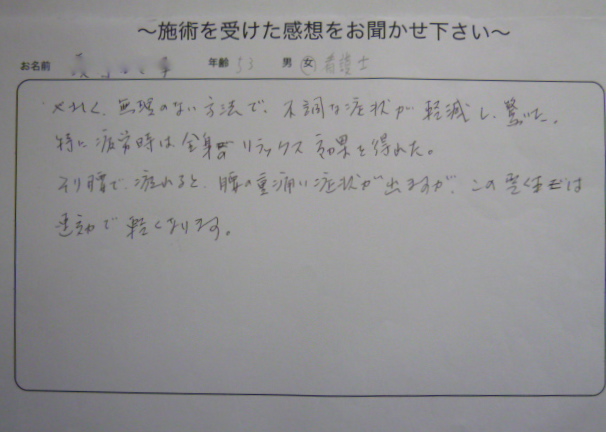 ～施術を受けた感想をお聞かせ下さい～
お名前 年齢 53 男 女 看護士
やさしく、無理のない方法で、不調な症状が軽減し、驚いた。
特に疲労時は全身のリラックス効果を得れた。
そり腰で、疲れると、腰の重痛い症状が出ますが、この
運動で軽くなります。